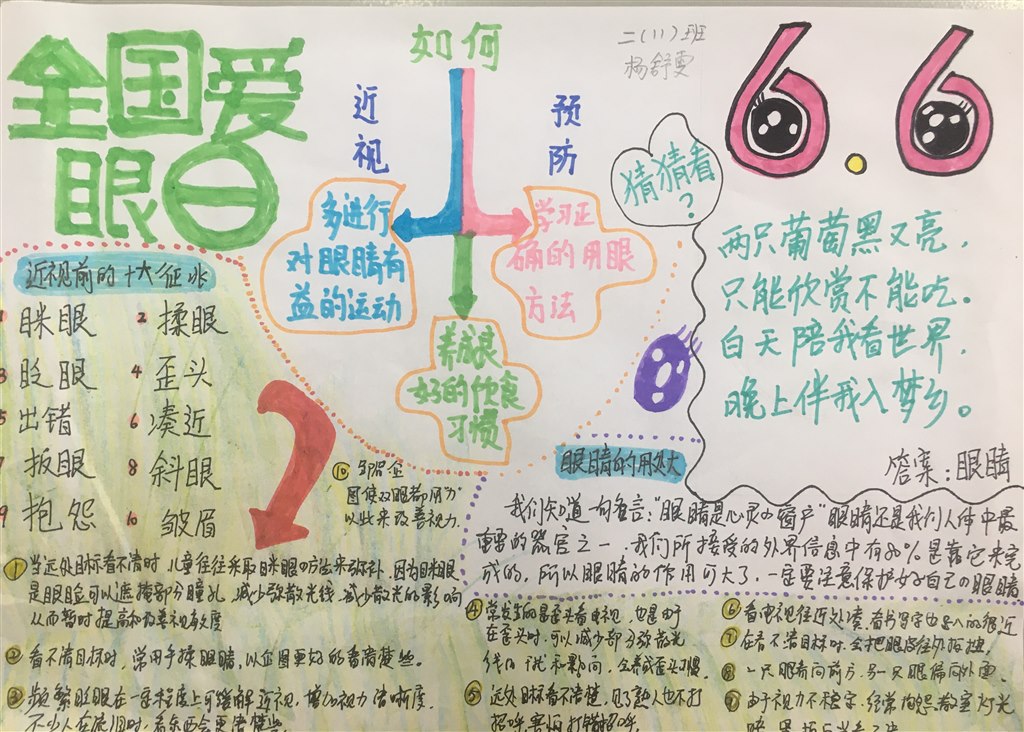 全国爱
眼日
如何
近视
预防
二(11)班
杨舒雯
6.6
多进行
对眼睛有
益的运动
学习正
确的用眼
方法
养成良
好的饮食
习惯
猜猜看
?
两只葡萄黑又亮，
只能欣赏不能吃。
白天陪我看世界，
晚上伴我入梦乡。
答案：眼睛
近视前的十大征兆
1 眯眼
2 揉眼
3 眨眼
4 歪头
5 出错
6 凑近
7 扳眼
8 斜眼
9 抱怨
10 皱眉
眼睛的用处大
我们知道一句名言："眼睛是心灵的窗户"眼睛还是我们人体中最
重要的器官之一，我们所接受的外界信息中有80%是靠它来完
成的，所以眼睛的作用可大了，一定要注意保护好自己的眼睛
⑩ 企
图使双眼都用"力"
以此来改善视力。
① 当远处目标看不清时，儿童往往采取眯眼的方法来弥补，因为眯眼
是眼睑可以遮掩部分瞳孔，减少散光线，减少散光的影响
从而暂时提高和改善视力
② 看不清目标时，常用手揉眼睛，以企图更好的看清楚些。
③ 频繁眨眼在一定程度上可缓解近视，增加视力清晰度
④ 常发生的是歪头看电视，也是由
在歪头时，可以减少部分弥散光
线的
⑤ 远处目标看不清楚，见了熟人也不打
招呼
⑥ 看电视往近处凑，看书写字也
⑦ 在看不清目标时，会把眼
⑧ 一只眼看向前方，另一只眼偏向外面。
⑨ 由于视力不稳定，经常抱怨教室灯光